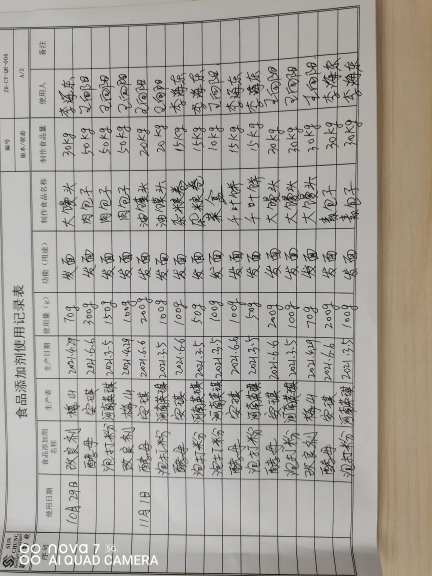 食品添加剂使用记录表
编号 ZR-CY-QR-004
版本/状态 A/2
使用日期 食品添加剂名称 生产者 生产日期 使用量（g） 功能（用途） 制作食品名称 制作食品量 使用人 备注
10月29日 改良剂 梅山 2021.4.29 70g 发面 大馒头 30kg 李海东
酵母 安琪 2021.6.6 300g 发面 肉包子 50kg 王向阳
泡打粉 2021.3.5 150g 发面 肉包子 50kg 王向阳
改良剂 梅山 2021.4.29 100g 发面 肉包子 50kg 王向阳
11月1日 酵母 安琪 2021.6.6 200g 发面 油馒头 20kg 李海东
泡打粉 2021.3.5 100g 发面 油馒头 20kg 王向阳
酵母 安琪 2021.6.6 100g 发面 杂粮卷 15kg 李海东
泡打粉 2021.3.5 50g 发面 杂粮卷 15kg 李海东
泡打粉 2021.3.5 100g 发面 菜盒 10kg 王向阳
酵母 安琪 2021.6.6 100g 发面 千叶饼 15kg 李海东
泡打粉 2021.3.5 50g 发面 千叶饼 15kg 李海东
酵母 安琪 2021.6.6 200g 发面 大馒头 30kg 王向阳
泡打粉 2021.3.5 100g 发面 大馒头 30kg 王向阳
改良剂 梅山 2021.4.29 70g 发面 大馒头 30kg 王向阳
酵母 安琪 2021.6.6 200g 发面 素包子 30kg 李海东
泡打粉 2021.3.5 100g 发面 素包子 30kg 李海东
nova 7 5G
AI QUAD CAMERA